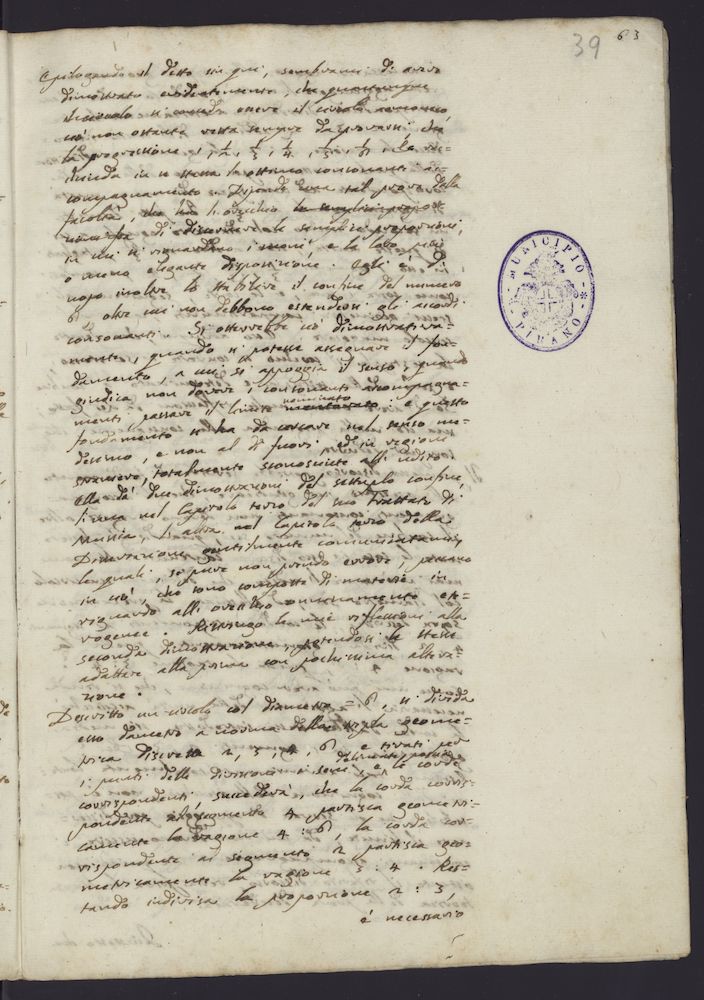 39
63
Epilogando il detto sin qui, sembrami di avere
dimostrato evidentemente, che quantunque
il circolo si conceda essere il circolo armonico
ciò non ostante resta sempre da provarsi, che
la progressione 1, 1/2, 1/3, 1/4, 1/5, 1/6, la ri=
chieda in se stessa le ottime consonanti ac=
compagnamento. Dipende una tal prova dalla
facoltà, che ha l'orecchio
di discernere le semplici proporzioni,
in cui si i suoni, e la loro più
o meno elegante disposizione. Egli è di
uopo inoltre lo stabilire il confine del numero
6, oltre cui non debbono estendersi gli accordi
consonanti. Si otterrebbe ciò dimostrativa=
mente, quando si potesse assegnare il fon=
damento, a cui si appoggia il senso, quando
giudica non dovere i consonanti accompagna=
menti passare il limite nominato: e questo
fondamento si ha da cercare nel senso me=
desimo, e non al di fuori, ed in regione
straniera, totalmente sconosciuta all' udito.
Ella dà due dimostrazioni del sestuplo confine,
l'una nel Capitolo terzo del suo Trattato di
Musica, l'altra nel Capitolo terzo della
Dissertazione gentilmente comunicatami,
le quali, se pure non prendo errore, peccano
in ciò, che sono composte di materie in
riguardo all' orecchio onninamente ete=
rogenee. Ristringo le mie riflessioni alla
seconda dimostrazione, potendosi le stesse
adattare alla prima con pochissima altera=
zione.
Descritto un circolo col diametro = 6, si divida
esso diametro a norma della tripla geome=
trica discreta 2, 3, 4, 6, e tirati per
i punti delle divisioni i seni, e le corde
corrispondenti, succederà, che la corda corris=
pondente al segmento 4 partisca geometri=
camente la ragione 4 : 6, la corda cor=
rispondente al segmento 2 partisca geo=
metricamente la ragione 3 : 4. Res=
tando indivisa la proporzione 2 : 3
é necessario
MUNICIPIO
PIRANO